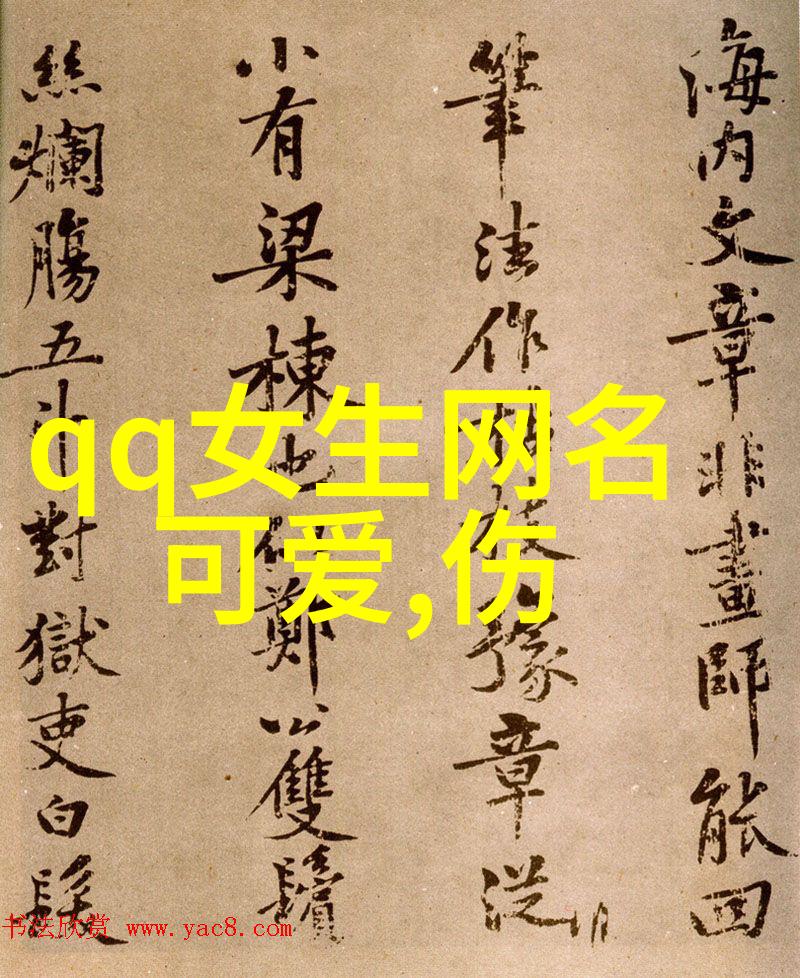 海内文章非畫師能回
筆法作枝豫章從
小有梁棟也鄭公雙鬢
絲爛腸五斗對獄吏白髮
qq女生网名
可爱,伤
书法欣赏 www.yac8.com